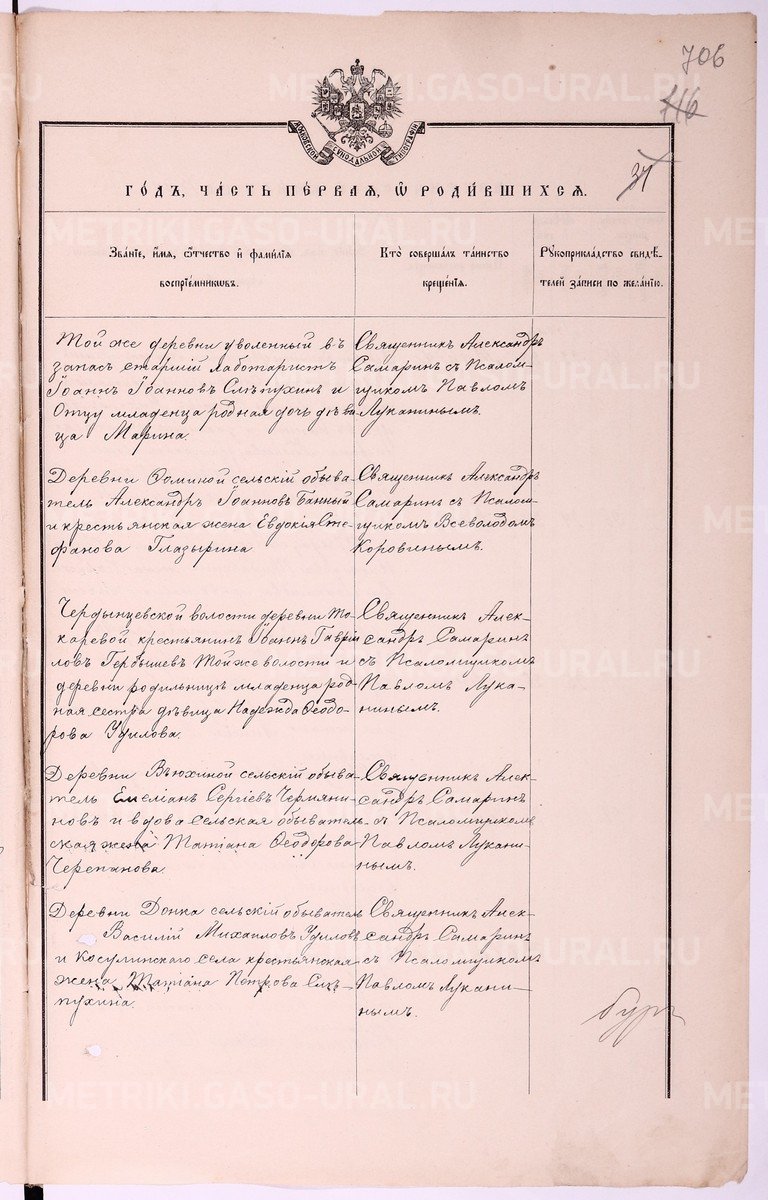 706
116
31
МОСКОВСКОЙ СѴНОДАЛЬНОЙ ТИПОГРАФІИ
ГОДЪ, ЧАСТЬ ПЕРВАЯ, Ѿ РОДИВШИХСЯ.
Званіе, имя, отчество и фамилія
воспріемниковъ.
Кто совершалъ таинство
крещенія.
Рукоприкладство свидѣ-
телей записи по желанію.
Той же деревни уволенный въ
запасъ старшій лаботаристъ
Іоаннъ Іоанновъ Слѣпухинъ и
Отцу младенца родная дочь дѣви
ца Марина.
Священникъ Александръ
Самаринъ съ Псалом-
щикомъ Павломъ
Луканинымъ.
Деревни Ѳоминой сельскій обыва-
тель Александръ Іоанновъ Банный
и крестьянская жена Евдокія Сте
фанова Глазырина
Священникъ Александръ
Самаринъ съ Псалом-
щикомъ Всеволодомъ
Коровинымъ.
Чердынцевской волости деревни То-
каревой крестьянинъ Іоаннъ Гаврі
ловъ Гербышев Той же волости и
деревни родильницѣ младенца род
ная сестра дѣвица Надежда Ѳеодо-
рова Удилова.
Священникъ Алек-
сандръ Самаринъ
съ Псаломщикомъ
Павломъ Лука-
нинымъ.
Деревни Вьюхиной сельскій обыва-
тель Емеліанъ Сергіевъ Чермяни-
новъ и вдова сельская обыватель-
ская жена Татіана Ѳеодорова
Черепанова.
Священникъ Алек-
сандръ Самаринъ
съ Псаломщикомъ
Павломъ Лукани-
нымъ.
Деревни Донка сельскій обыватель
Василій Михаиловъ Удиловъ
и Косулинскаго села крестьянская
жена Татіана Петрова Слѣ-
пухина.
Священникъ Алек-
сандръ Самаринъ
съ Псаломщикомъ
Павломъ Лукани-
нымъ.
METRIKI.GASO-URAL.RU